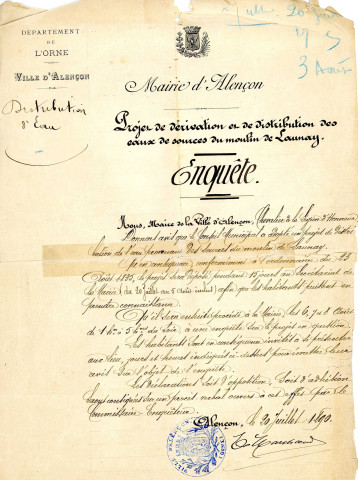 DÉPARTEMENT
DE
L'ORNE
VILLE D'ALENÇON
Distribution
d'Eau
3 Août
Mairie d'Alençon
Projet de dérivation et de distribution des
eaux de sources du moulin de Launay.
Enquête.
Nous, Maire de la Ville d'Alençon, Chevalier de la Légion d'Honneur
Donnons avis que le Conseil Municipal a adopté un projet de Distri
bution de l'eau provenant des sources du moulin de Launay.
conformément à l'ordonnance du 23
Août 1835, le projet sera déposé pendant 15 jours au Secrétariat de
la Mairie (du 20 juillet au 5 Août inclus) afin que les habitants puissent en
prendre connaissance.
Qu'il sera ensuite procédé à la Mairie les 6, 7 & 8 Août
de 1h à 5h du soir, à une enquête sur le projet en question.
Les habitants sont en conséquence invités à se présenter
aux lieu, jours et heures indiqués ci-dessus pour émettre leur
avis sur l'objet de l'enquête.
Les déclarations, soit d'opposition, soit d'adhésion
seront consignées sur un procès verbal ouvert à cet effet par le
Commissaire Enquêteur.
Alençon, le 20 Juillet 1890.